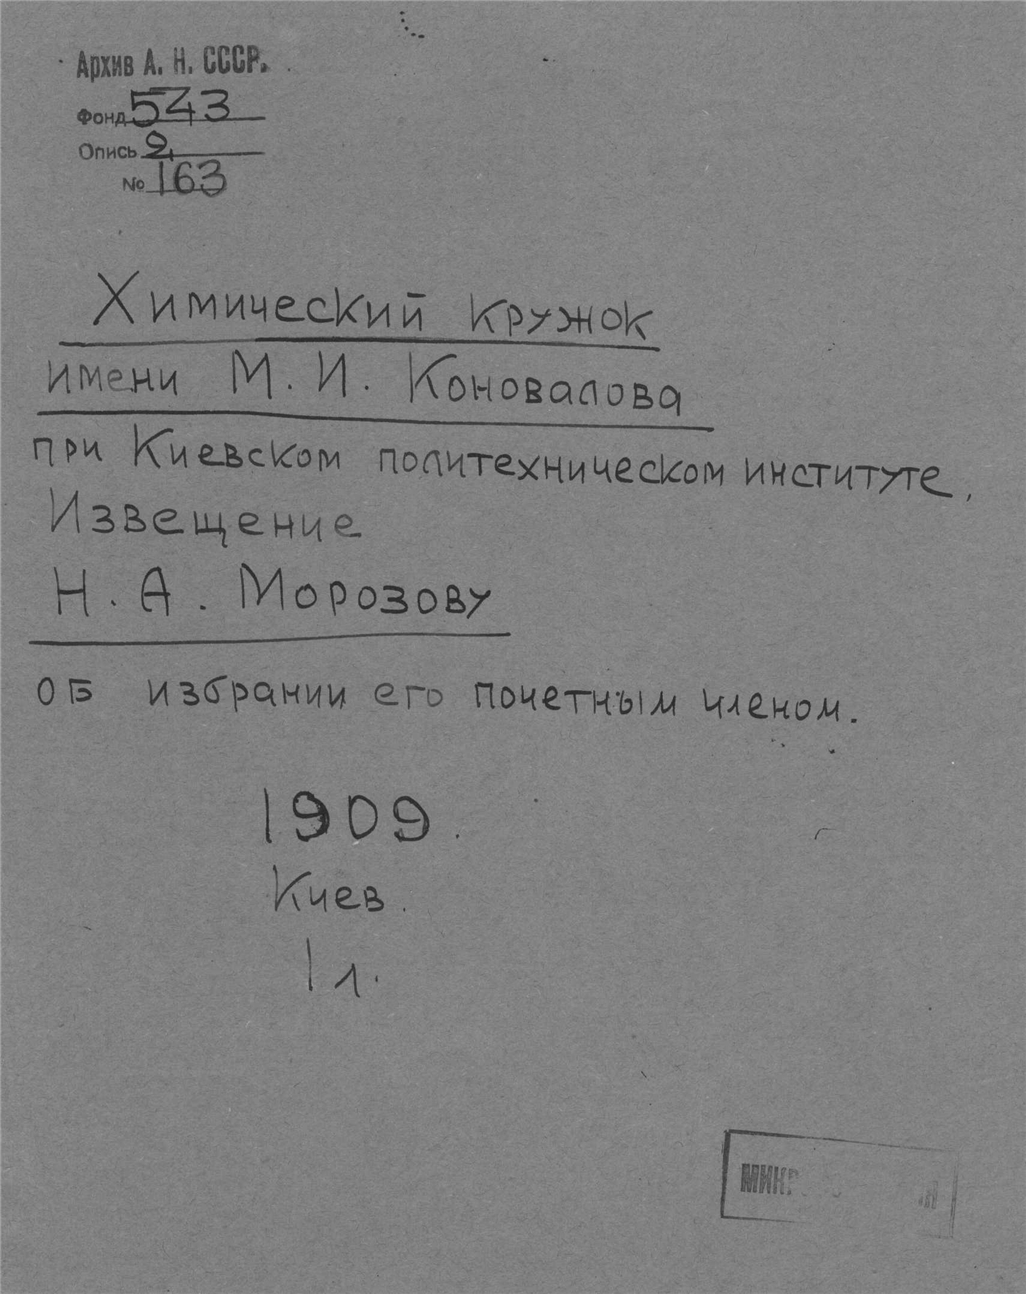 Архив А. Н. СССР.
Фонд 543
Опись 2
№ 163
Химический кружок
имени М. И. Коновалова
при Киевском политехническом институте.
Извещение
Н. А. Морозову
об избрании его почетным членом.
1909.
Киев.
1 л.